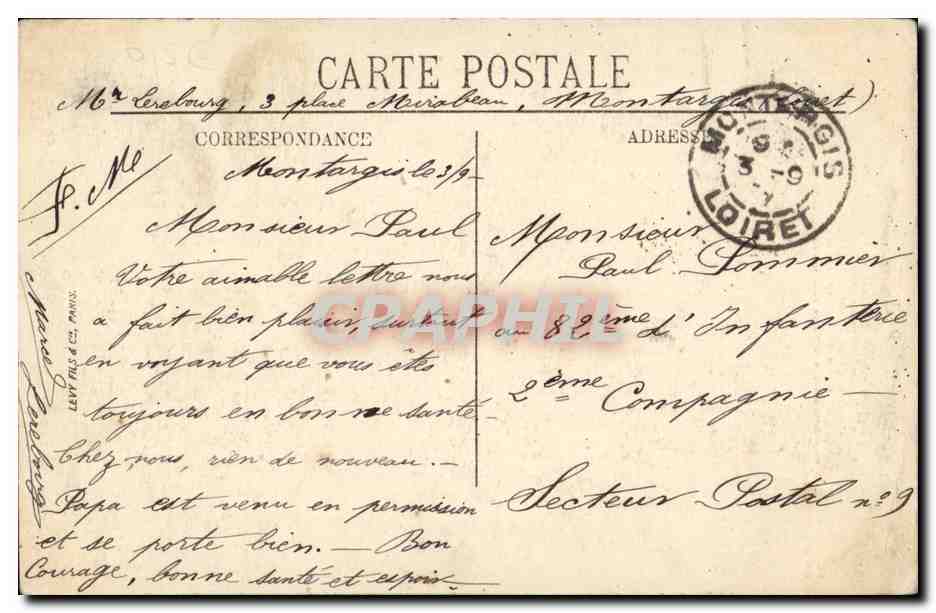 CARTE POSTALE
Mr Lerebourg, 3 place Mirabeau, Montargis (Loiret)
CORRESPONDANCE
ADRESSE
F. M.
Montargis le 3/9-
Monsieur Paul
Votre aimable lettre nous
a fait bien plaisir, surtout
en voyant que vous êtes
toujours en bonne santé
Chez nous, rien de nouveau. -
Papa est venu en permission
et se porte bien. - Bon
Courage, bonne santé et espoir -
Marcel Lerebourg
LEVY FILS & Cie, PARIS.
MONTARGIS
3 - 9
LOIRET
Monsieur
Paul Sommier
au 82ème d'Infanterie
2ème Compagnie -
Secteur Postal no 9
CPAPHIL